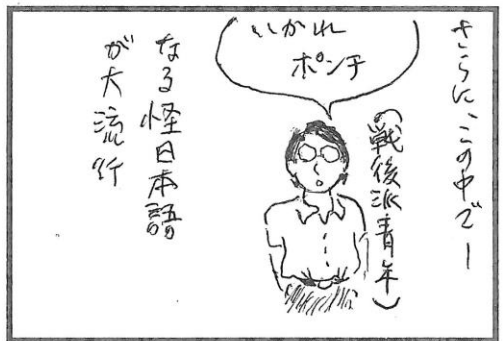 さらに、この中で─
(戦後派青年)
いかれ
ポンチ
なる怪日本語
が大流行